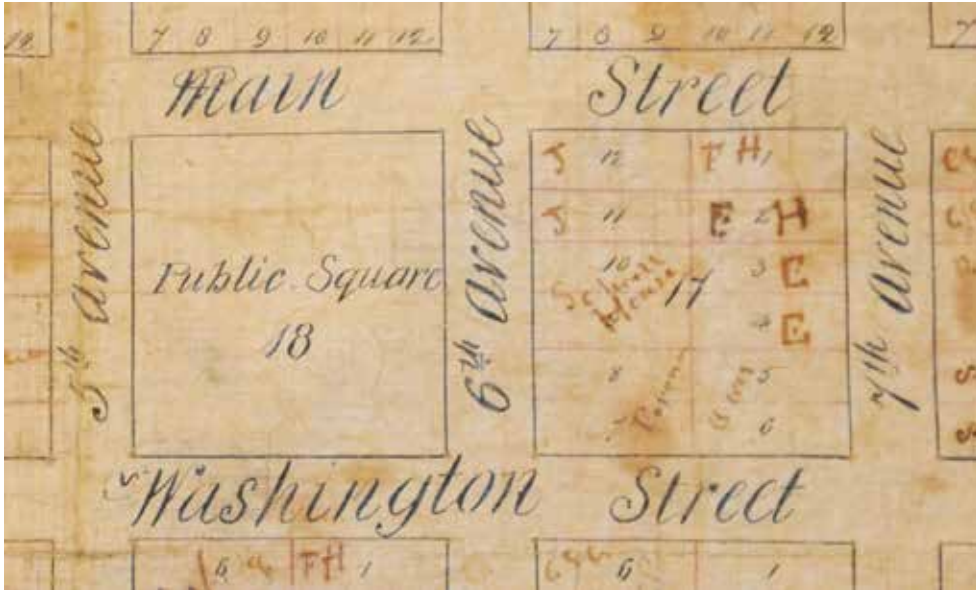 12 7 8 9 10 11 12 7 8 9 10 11 12 7
Main Street
5th avenue
Public Square
18
6th avenue
J 12 F H 1
J 11 E 2 H
10 3 E
School House
17
4 E
8 5
6
7th avenue
Washington Street
6 FH 1 6 1